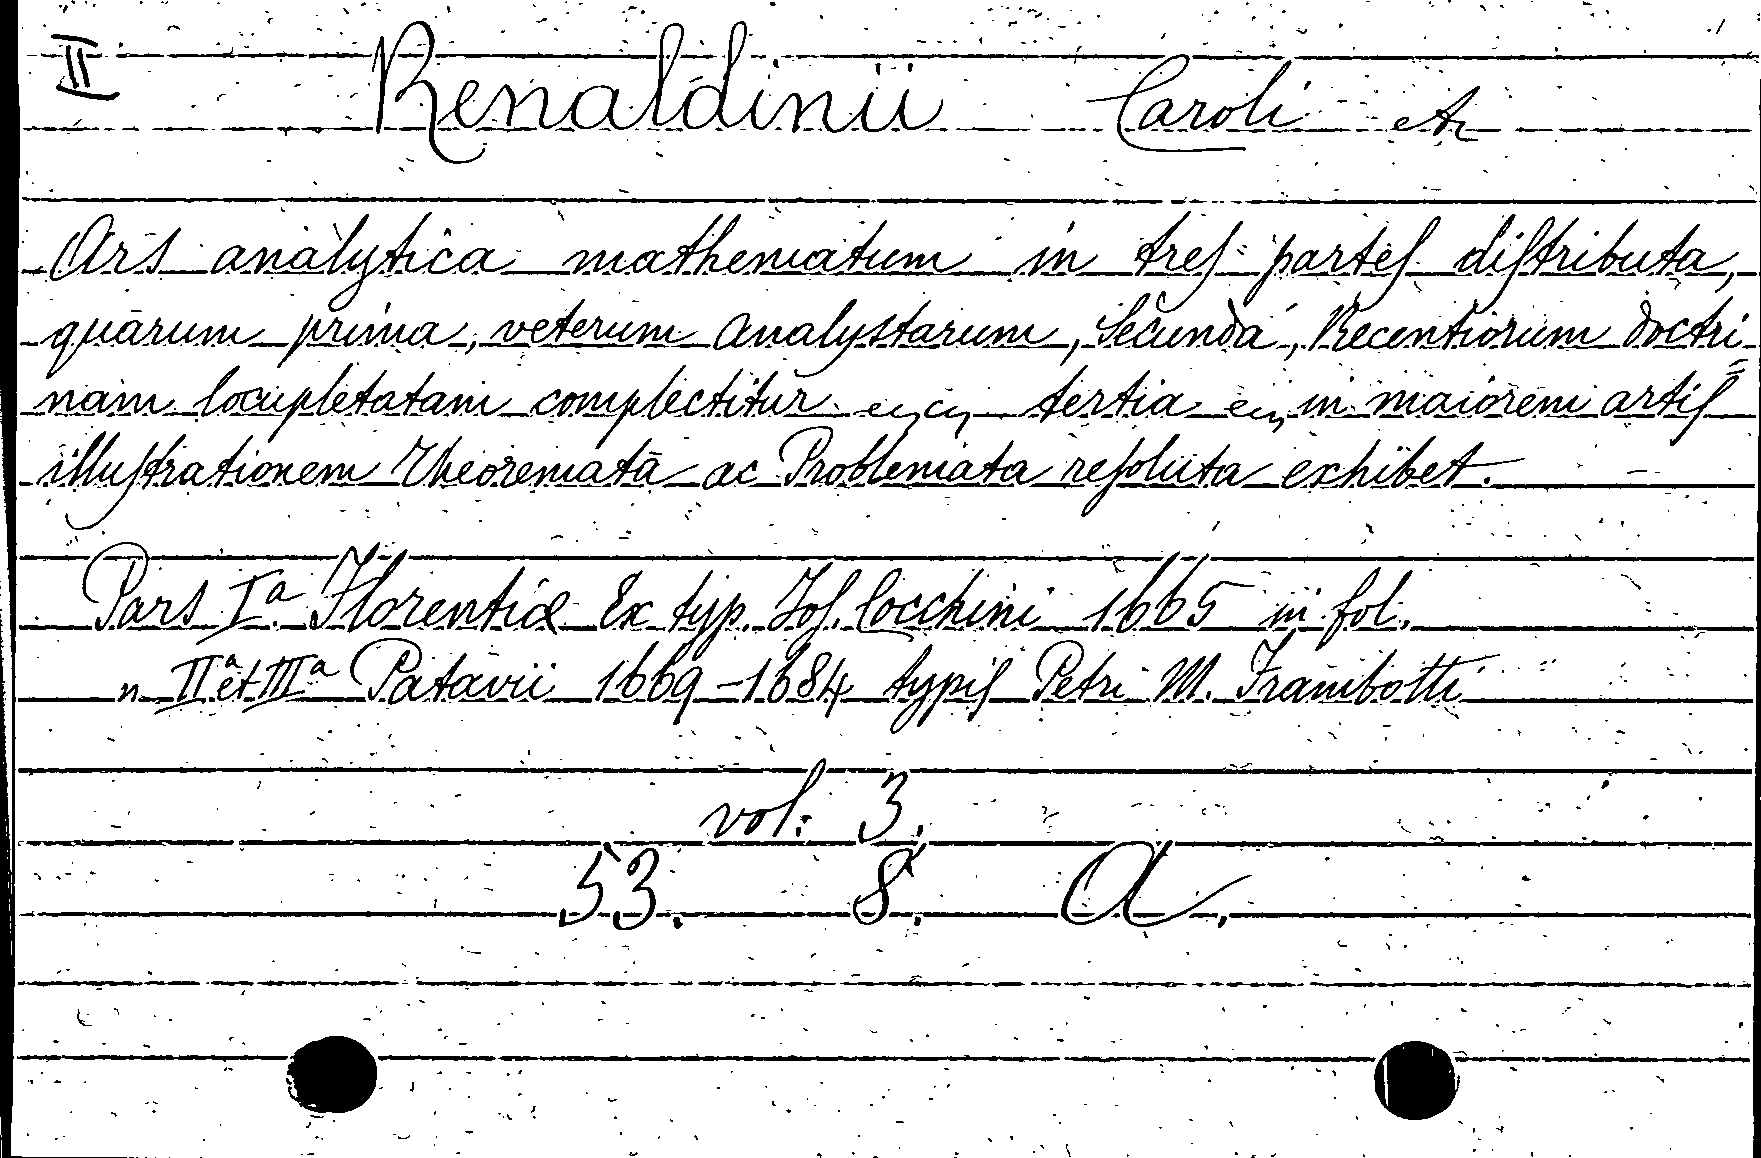 II
Renaldinii Caroli
Ars analytica mathematum in treſ parteſ diſtributa,
quarum prima, veterum Analystarum, Secunda, Recentiorum doctri
nam locupletatam complectitur tertia in maiorem artiſ
illuſtrationem Theoremata ac Problemata reſoluta exhibet.
Pars Iª Florentiæ Ex typ. Joſ. Cocchini 1665 in fol.
" IIª et IIIª Patavii 1669-1684 typiſ Petri M. Frambotti
vol: 3.
53. 8. A.